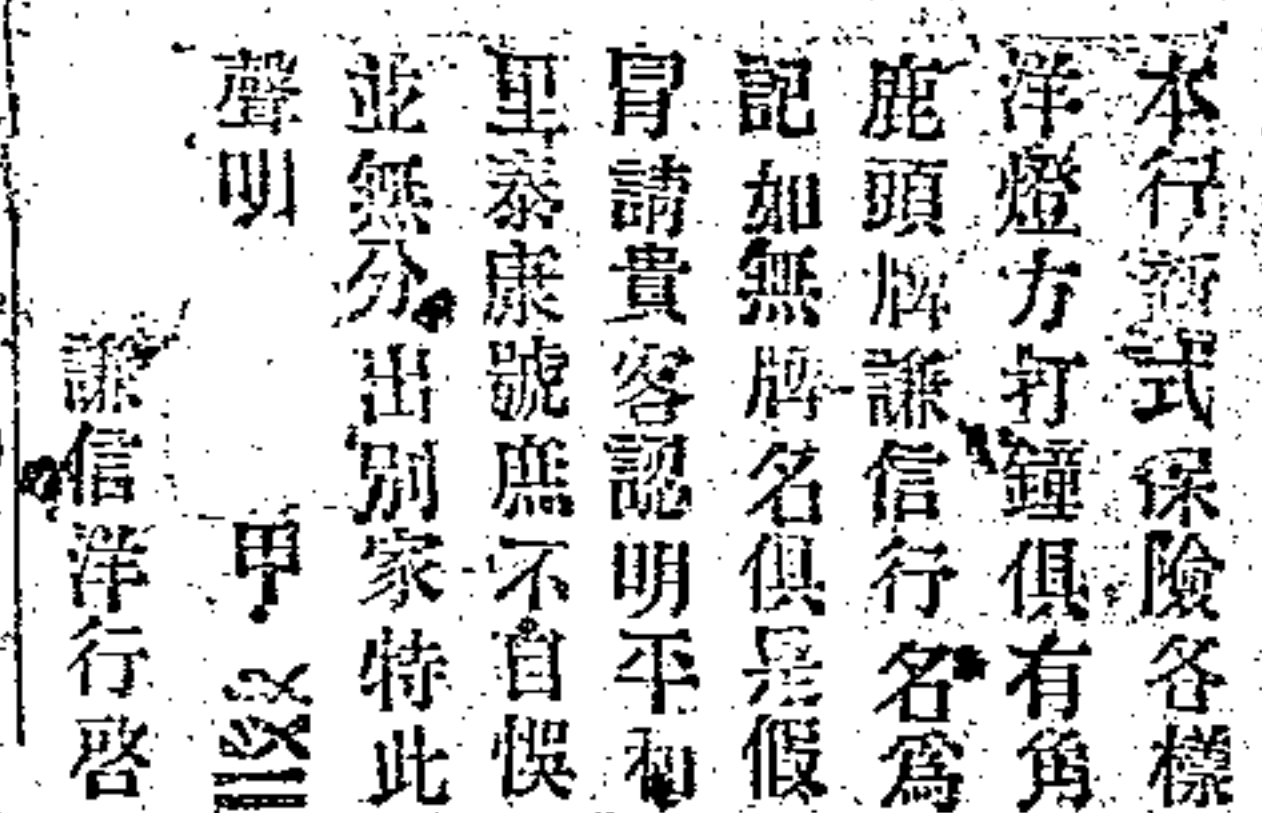 本行新式保險各樣
洋燈方打鐘俱有角
鹿頭牌謙信行名爲
記如無牌名俱是假
冐請貴客認明平和
里泰康號庶不自悞
並無分出別家特此
聲明
甲
謙信洋行啓